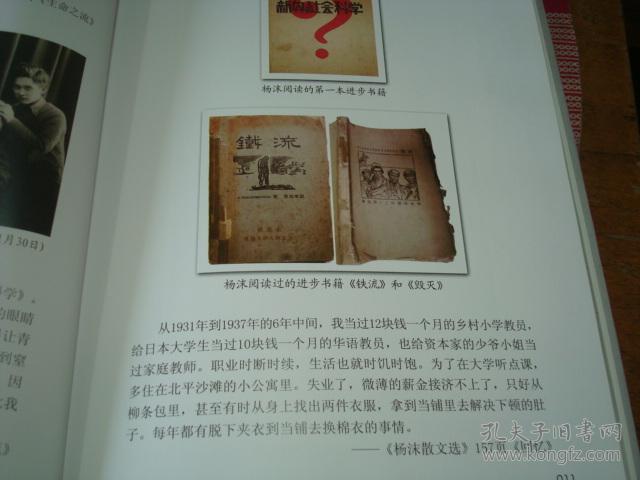 《生命之流》
新的社会科学
杨沫阅读的第一本进步书籍
鐵流
月30日)
杨沫阅读过的进步书籍《铁流》和《毁灭》
科学》。
的眼睛
让青
到窒
因
我
》
从1931年到1937年的6年中间，我当过12块钱一个月的乡村小学教员，
给日本大学生当过10块钱一个月的华语教员，也给资本家的少爷小姐当
过家庭教师。职业时断时续，生活也就时饥时饱。为了在大学听点课，
多住在北平沙滩的小公寓里。失业了，微薄的薪金接济不上了，只好从
柳条包里，甚至有时从身上找出两件衣服，拿到当铺里去解决下顿的肚
子。每年都有脱下夹衣到当铺去换棉衣的事情。
——《杨沫散文选》157页《回忆》
011
孔夫子旧书网
www.kongfz.com